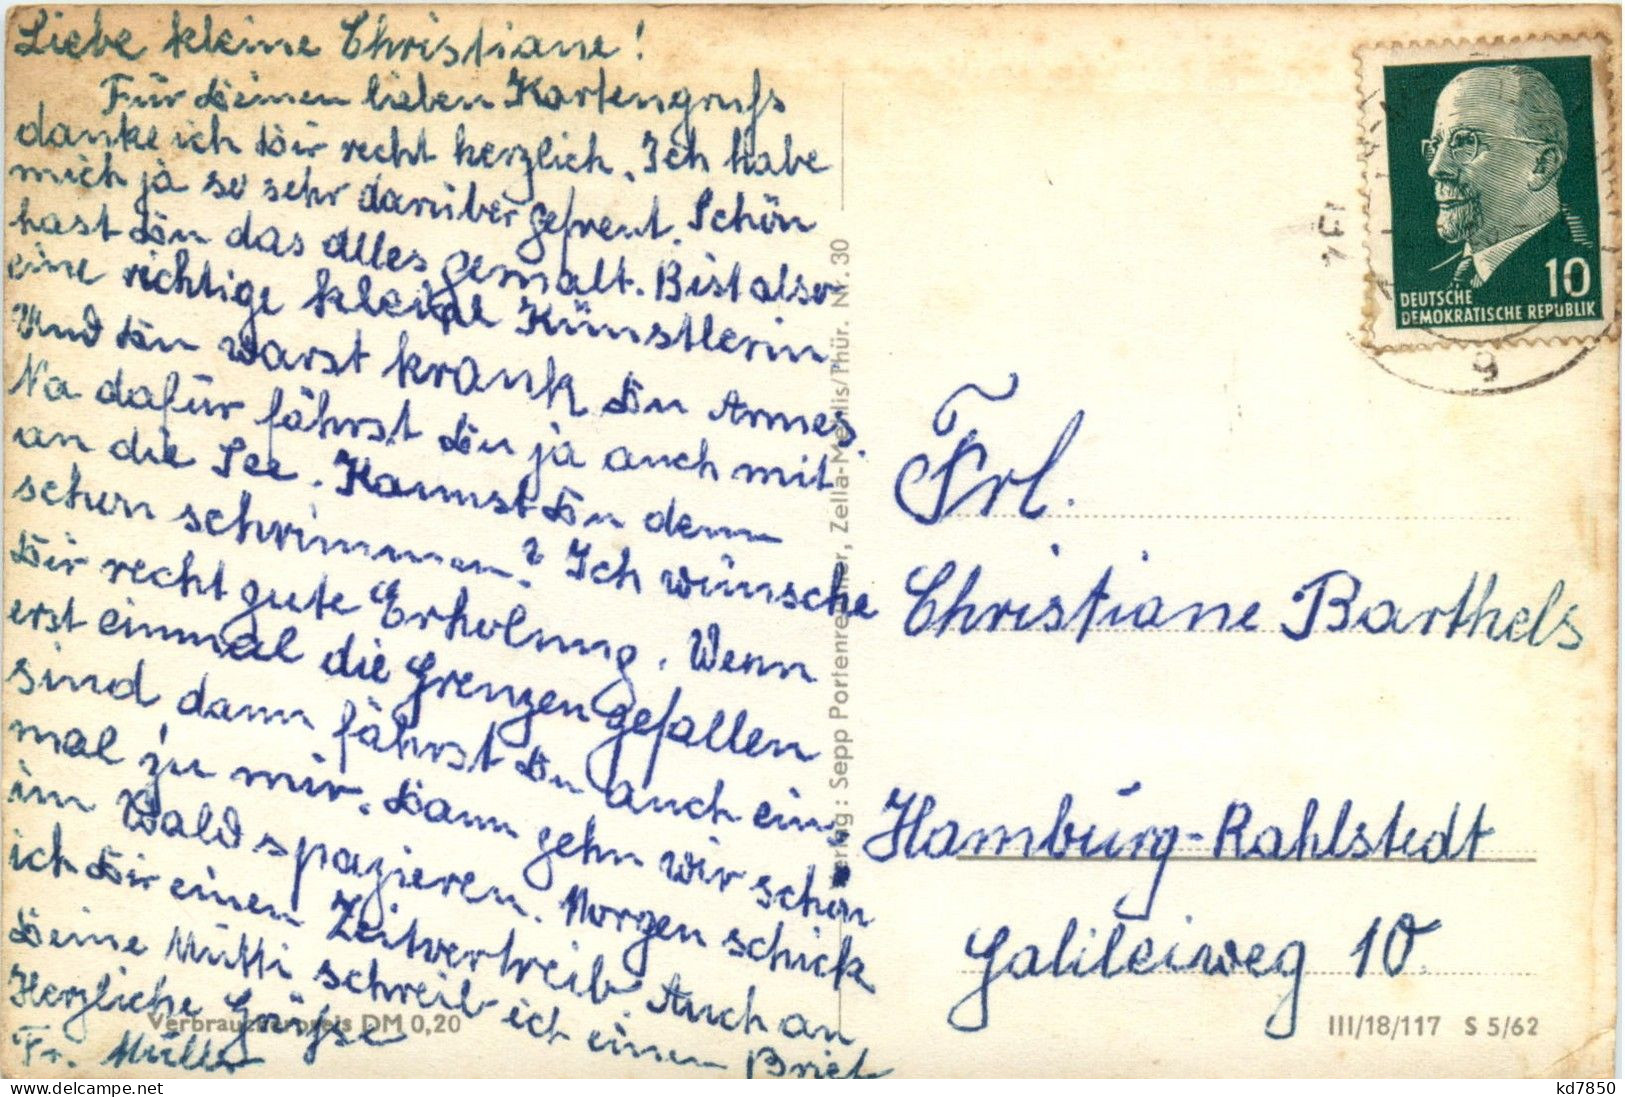 Liebe kleine Christiane!
Für Deinen lieben Kartengruß
danke ich Dir recht herzlich. Ich habe
mich ja so sehr darüber gefreut. Schön
hast Du das alles gemalt. Bist also
eine richtige kleine Künstlerin
Und Du warst krank Du Armes.
Na dafür fährst Du ja auch mit
an die See. Kannst Du denn
schon schwimmen? Ich wünsche
Dir recht gute Erholung. Wenn
erst einmal die Grenzen gefallen
sind dann fährst Du auch ein
mal zu mir. Dann gehn wir schön
im Wald spazieren. Morgen schick
ich Dir einen Zeitvertreib. Auch an
Deine Mutti schreib ich einen Brief
Herzliche Grüße
Fr. Müller
Verbraucherpreis DM 0,20
Verlag: Sepp Portenreiter, Zella-Mehlis/Thür. Nr. 30
10
DEUTSCHE
DEMOKRATISCHE REPUBLIK
9
Frl.
Christiane Barthels
Hamburg-Rahlstedt
Galileiweg 10.
III/18/117 S 5/62
delcampe.net
kd7850